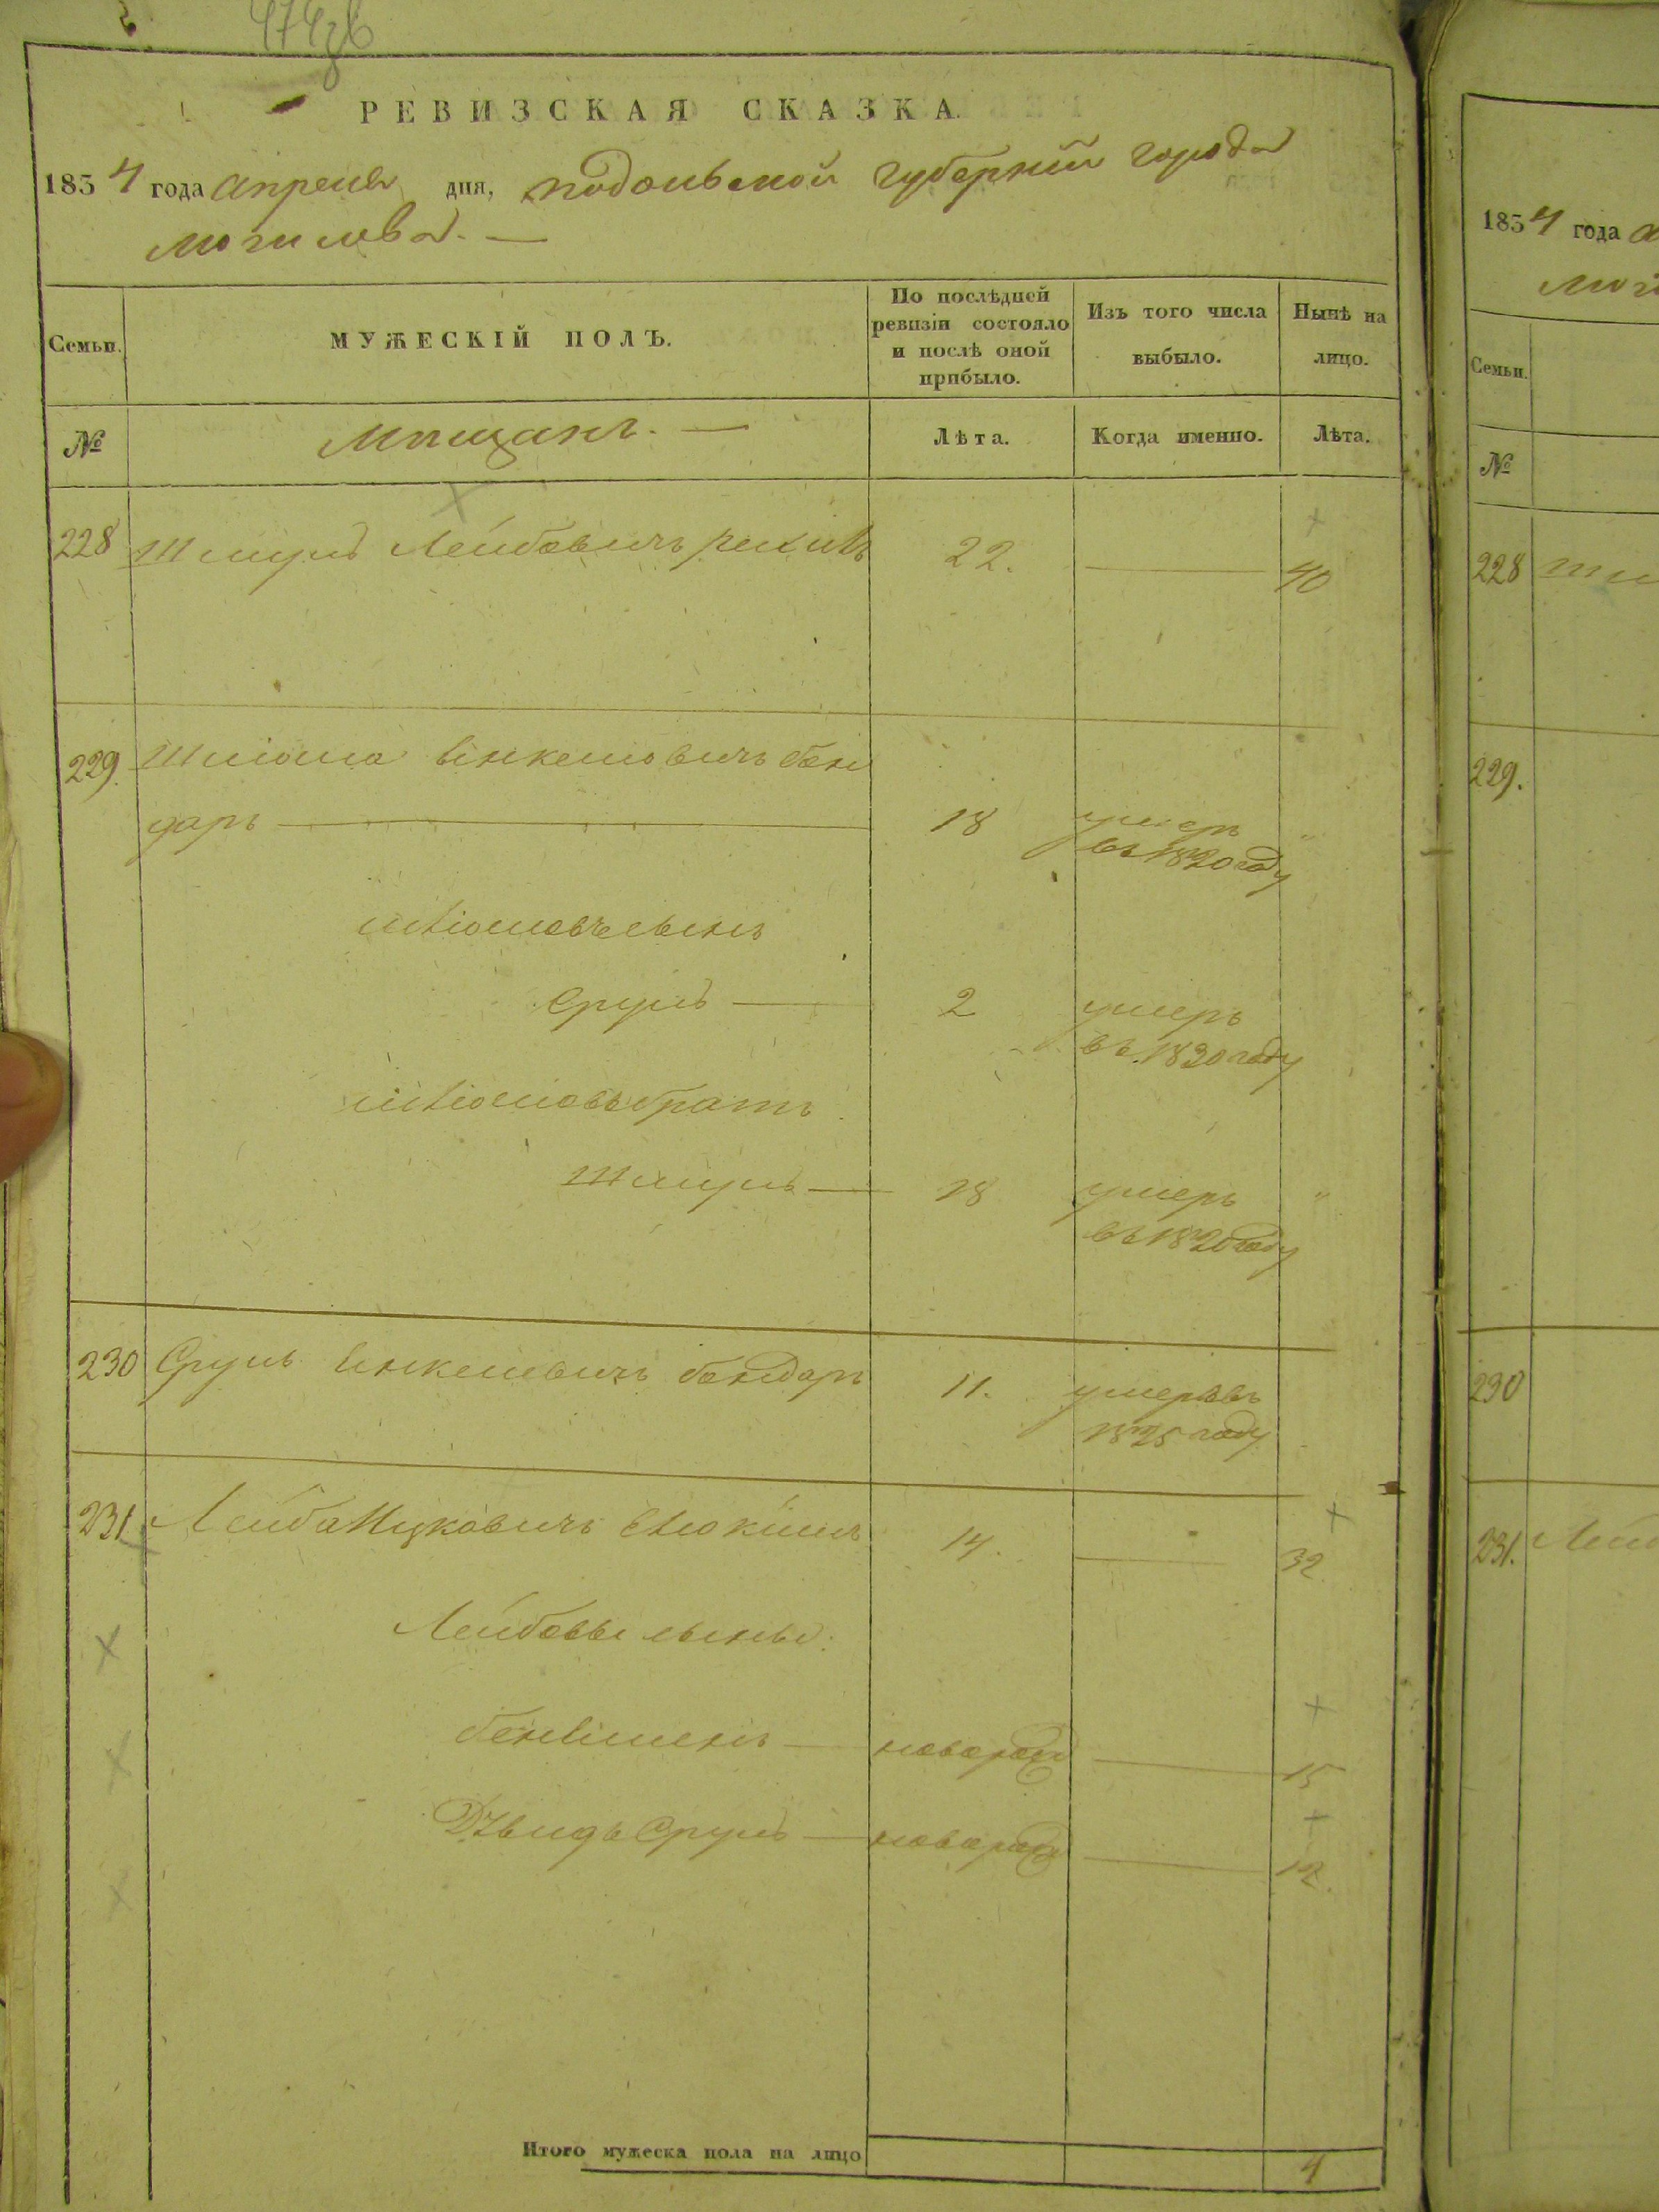 РЕВИЗСКАЯ СКАЗКА.
1834 года апреля дня, подольской губернии города
могилева. —
Семьи.
МУЖЕСКІЙ ПОЛЪ.
По послѣдней ревизіи состояло и послѣ оной прибыло.
Изъ того числа выбыло.
Нынѣ на лицо.
№
Мѣщанъ. —
Лѣта.
Когда именно.
Лѣта.
228 Шмуль Лейбовичъ 22. 40
229. Шліома Янкелювичъ бон
дарь 18 умеръ
въ 1820 году
шліомовъ сынъ
Сруль 2 умеръ
въ 1830 году
шліомовъ братъ
Шмуль 18 умеръ
въ 1820 году
230 Сруль Янкелевичъ бондарь 11. умеръ въ
1825 году
231 Лейба Ицковичъ 14. 32
Лейбовы сыны:
новорож 15
Сруль новорож 12.
Итого мужеска пола на лицо 4
1834 года
228
229.
230
231. Лейб
Семьи.
№